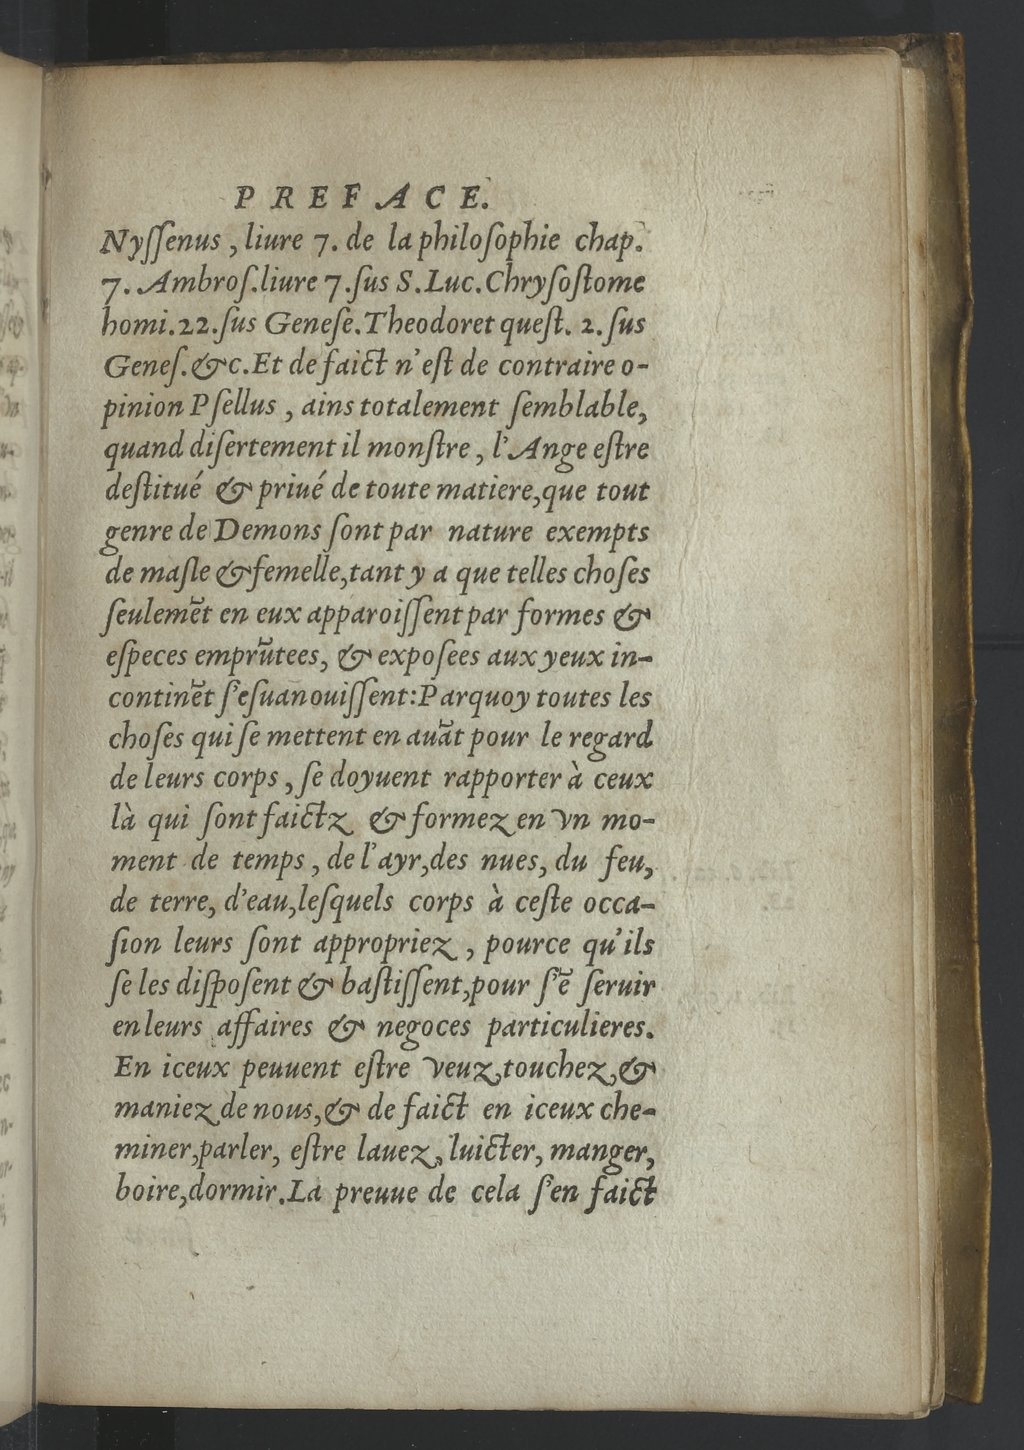 PREFACE.
Nyſſenus, liure 7. de la philoſophie chap.
7. Ambroſ. liure 7. ſus S. Luc. Chryſoſtome
homi. 22. ſus Geneſe. Theodoret queſt. 2. ſus
Geneſ. &c. Et de faict n'eſt de contraire o-
pinion Pſellus, ains totalement ſemblable,
quand diſertement il monſtre, l'Ange eſtre
deſtitué & priué de toute matiere, que tout
genre de Demons ſont par nature exempts
de maſle & femelle, tant y a que telles choſes
ſeulemẽt en eux apparoiſſent par formes &
eſpeces emprũtees, & expoſees aux yeux in-
continẽt ſ'eſuanouiſſent: Parquoy toutes les
choſes qui ſe mettent en auãt pour le regard
de leurs corps, ſe doyuent rapporter à ceux
là qui ſont faictz & formez en vn mo-
ment de temps, de l'ayr, des nues, du feu,
de terre, d'eau, leſquels corps à ceſte occa-
ſion leurs ſont appropriez, pource qu'ils
ſe les diſpoſent & baſtiſſent, pour ſ'ẽ ſeruir
en leurs affaires & negoces particulieres.
En iceux peuuent eſtre veuz, touchez, &
maniez de nous, & de faict en iceux che-
miner, parler, eſtre lauez, luicter, manger,
boire, dormir. La preuue de cela ſ'en faict